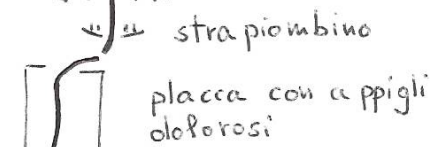 strapiombino
placca con appigli
dolorosi